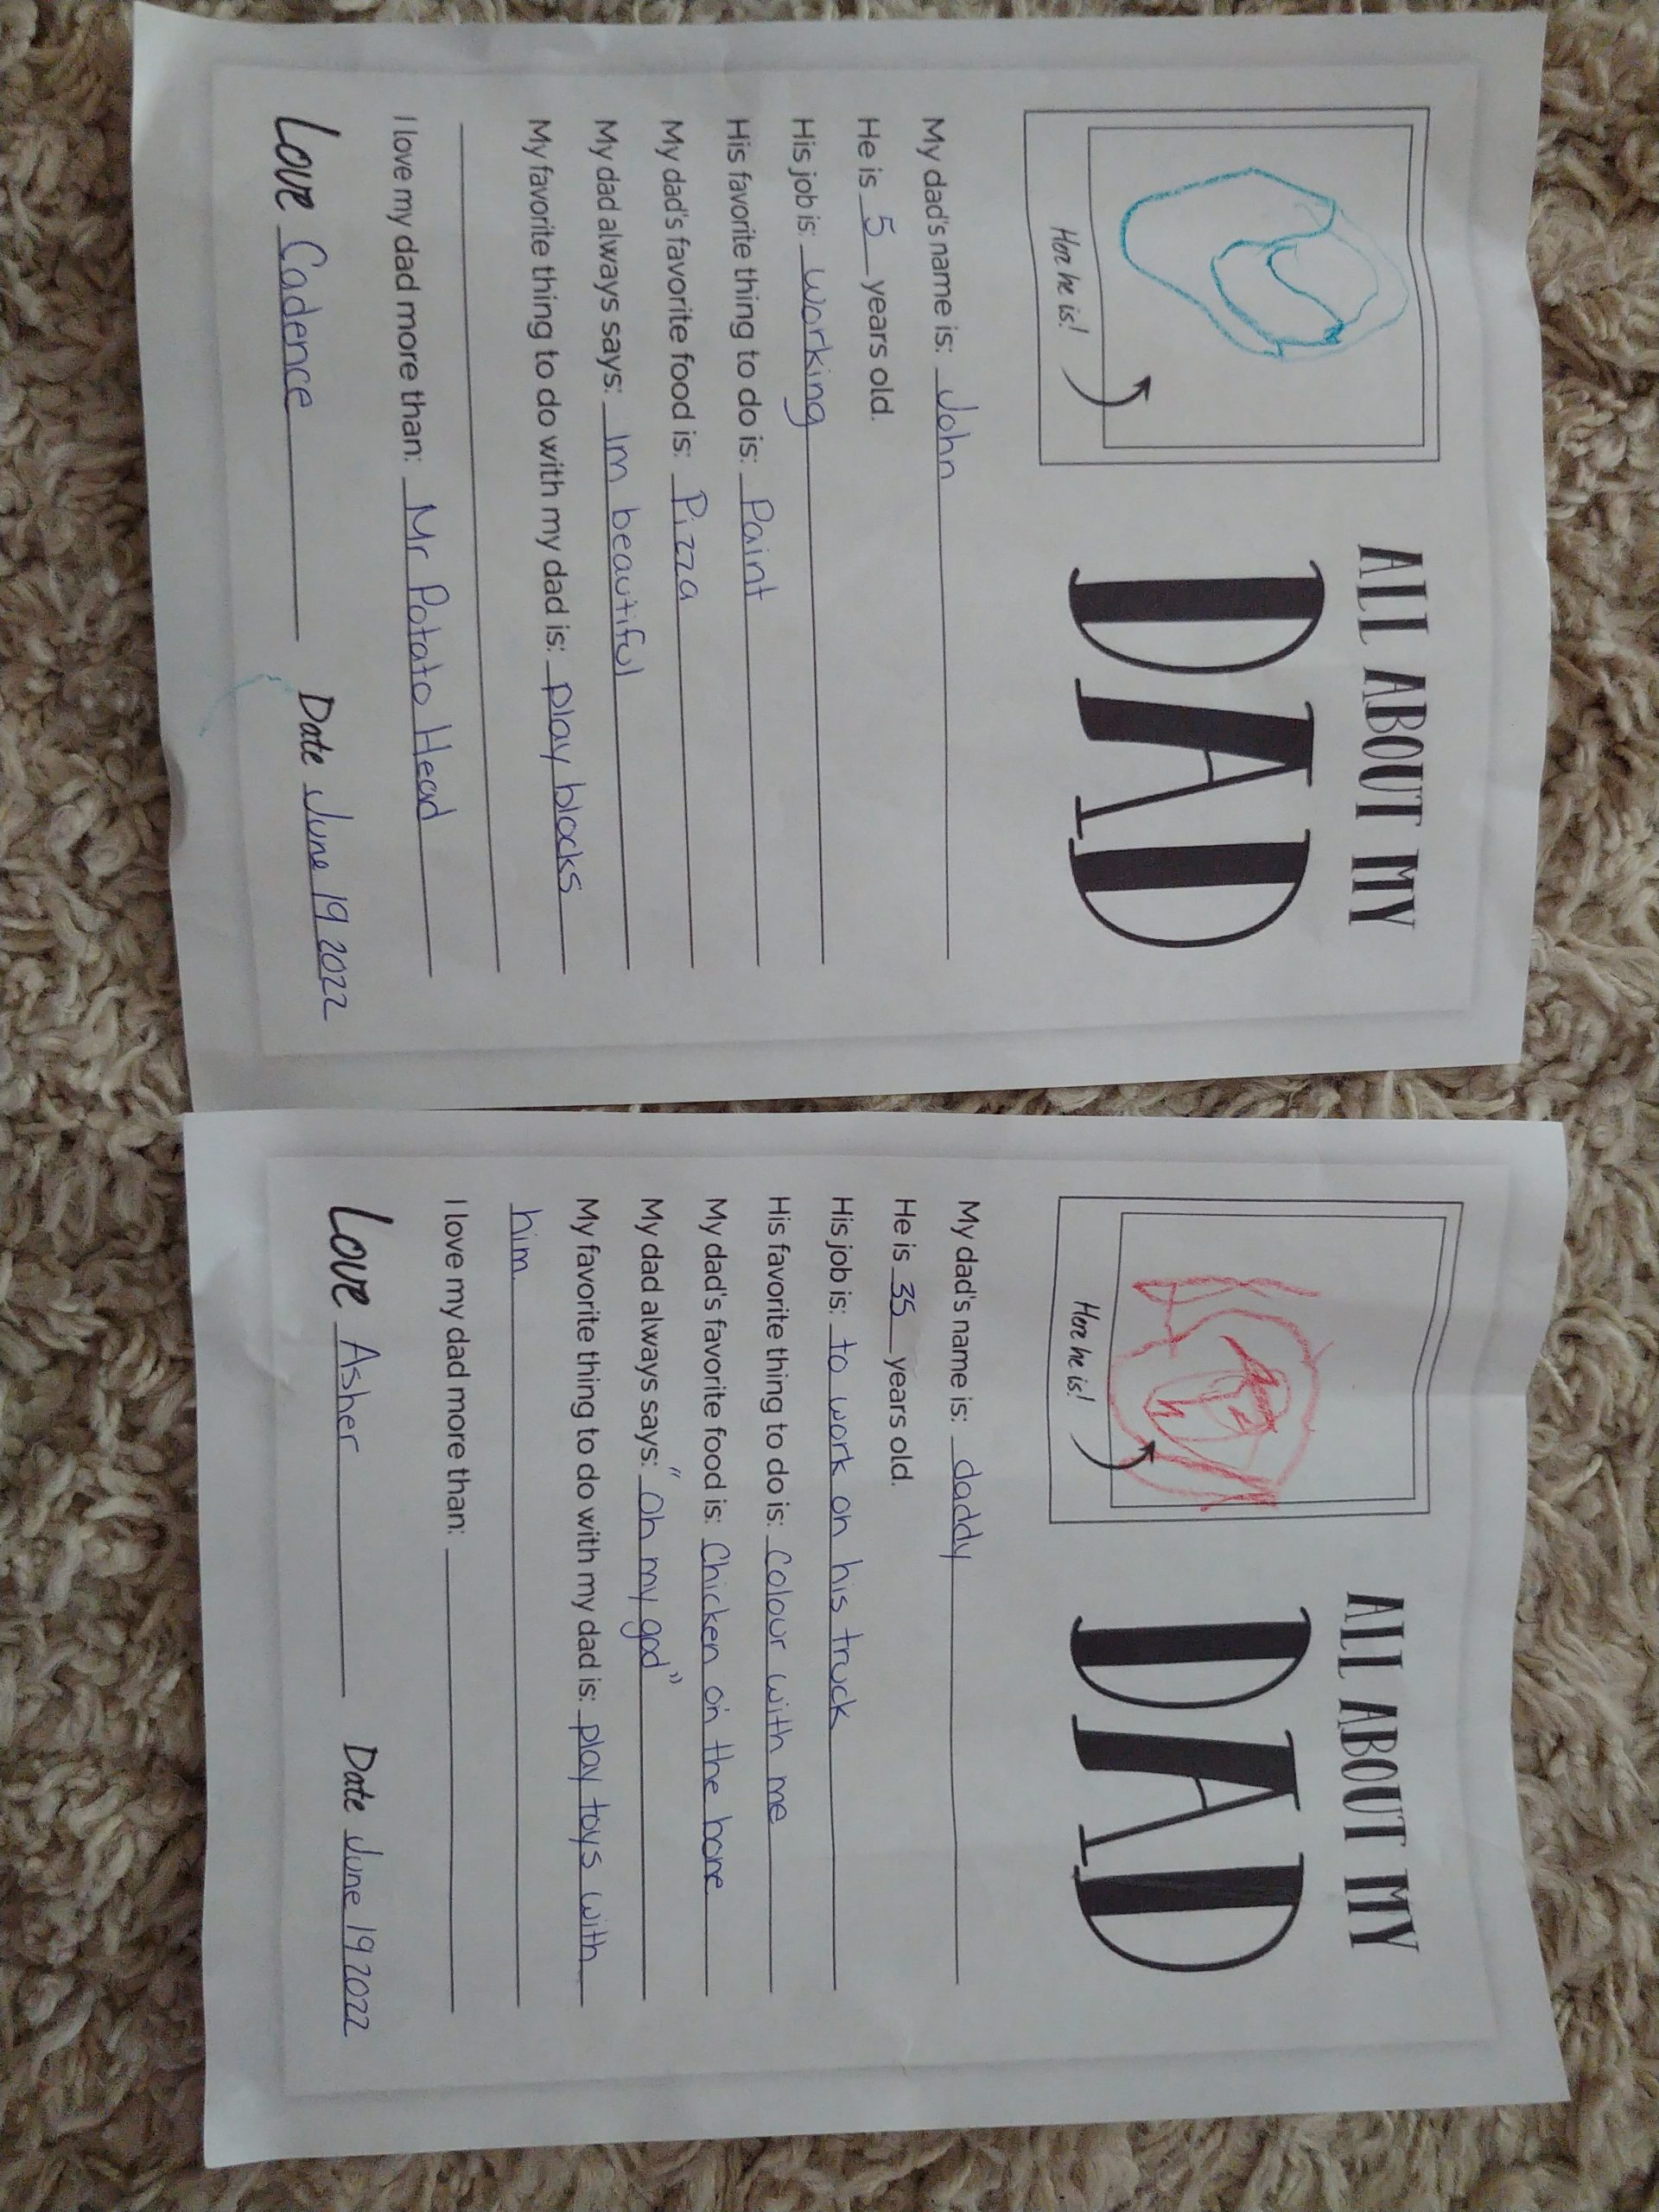 ALL ABOUT MY
DAD
Here he is!
My dad's name is: John
He is 5 years old.
His job is: working
His favorite thing to do is: Paint
My dad's favorite food is: Pizza
My dad always says: Im beautiful
My favorite thing to do with my dad is: play blocks
I love my dad more than: Mr Potato Head
Love Cadence Date June 19 2022
ALL ABOUT MY
DAD
Here he is!
My dad's name is: daddy
He is 35 years old.
His job is: to work on his truck
His favorite thing to do is: colour with me
My dad's favorite food is: Chicken on the bone
My dad always says: "Oh my god"
My favorite thing to do with my dad is: play toys with
him.
I love my dad more than:
Love Asher Date June 19 2022